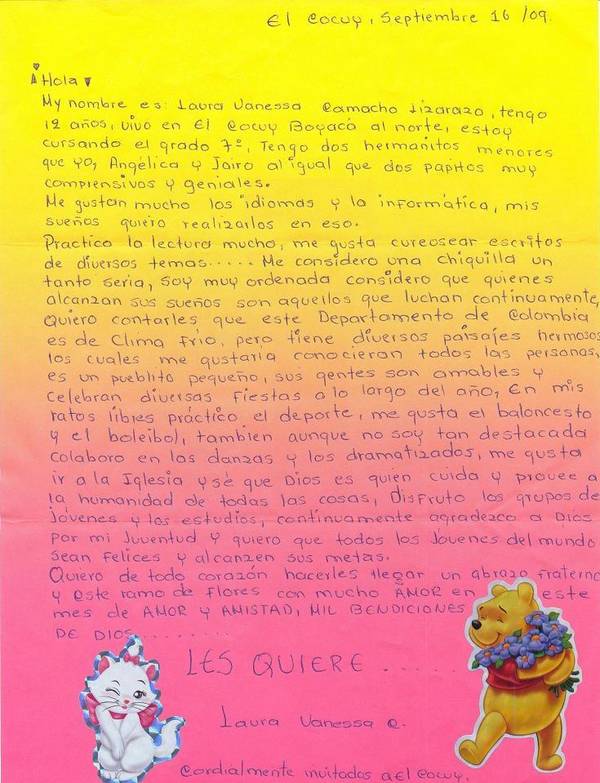 El Cocuy, Septiembre 16 /09.
Hola
My nombre es: Laura Vanessa Camacho Lizarazo, tengo
12 años, vivo en El Cocuy Boyacá al norte, estoy
cursando el grado 7º, Tengo dos hermanitos menores
que yo, Angélica y Jairo al igual que dos papitos muy
comprensivos y geniales.
Me gustan mucho los idiomas y la informática, mis
sueños quiero realizarlos en eso.
Practico la lectura mucho, me gusta cureosear escritos
de diversos temas..... Me considero una chiquilla un
tanto seria, soy muy ordenada considero que quienes
alcanzan sus sueños son aquellos que luchan continuamente,
Quiero contarles que este Departamento de Colombia
es de Clima frio, pero tiene diversos paisajes hermosos
los cuales me gustaria conocieran todos las personas,
es un pueblito pequeño, sus gentes son amables y
celebran diversas fiestas a lo largo del año, En mis
ratos libres práctico el deporte, me gusta el baloncesto
y el boleibol, tambien aunque no soy tan destacada
colaboro en las danzas y los dramatizados, me gusta
ir a la Iglesia y sé que Dios es quien cuida y provee a
la humanidad de todas las cosas, Disfruto los grupos de
jóvenes y los estudios, continuamente agradezco a Dios
por mi Juventud y quiero que todos los Jovenes del mundo
sean felices y alcanzen sus metas.
Quiero de todo corazón hacerles llegar un abrazo fraterno
y este ramo de flores con mucho AMOR en este
mes de AMOR y AMISTAD, MIL BENDICIONES
DE DIOS.........
LES QUIERE .....
Laura Vanessa C.
Cordialmente invitados a El Cocuy.